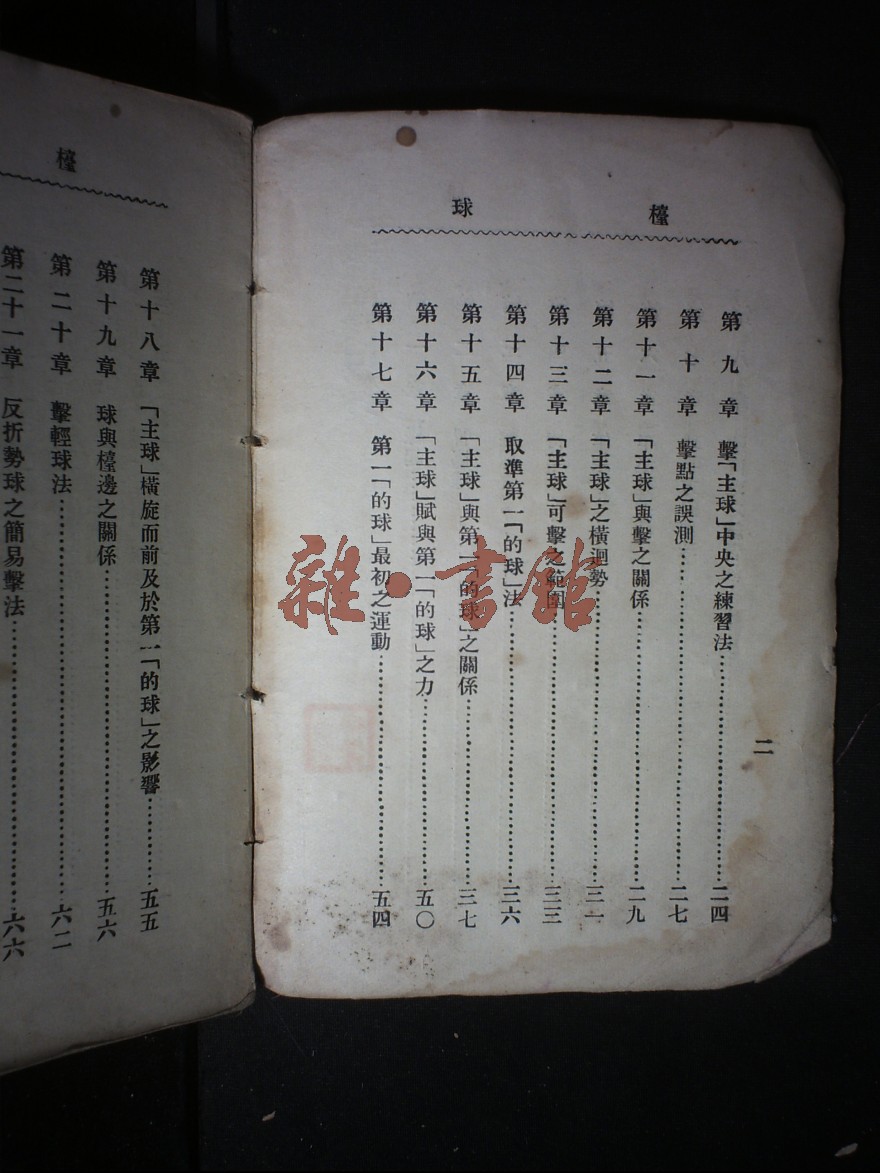 檯球
二
第九章 擊「主球」中央之練習法……二四
第十章 擊點之誤測……二七
第十一章 「主球」與擊之關係……二九
第十二章 「主球」之橫洄勢……三一
第十三章 「主球」可擊之範圍……三三
第十四章 取準第一「的球」法……三六
第十五章 「主球」與第一「的球」之關係……三七
第十六章 「主球」賦與第一「的球」之力……五〇
第十七章 第一「的球」最初之運動……五四
檯
第十八章 「主球」橫旋而前及於第一「的球」之影響……五五
第十九章 球與檯邊之關係……五六
第二十章 擊輕球法……六二
第二十一章 反折勢球之簡易擊法……六六
雜·書館